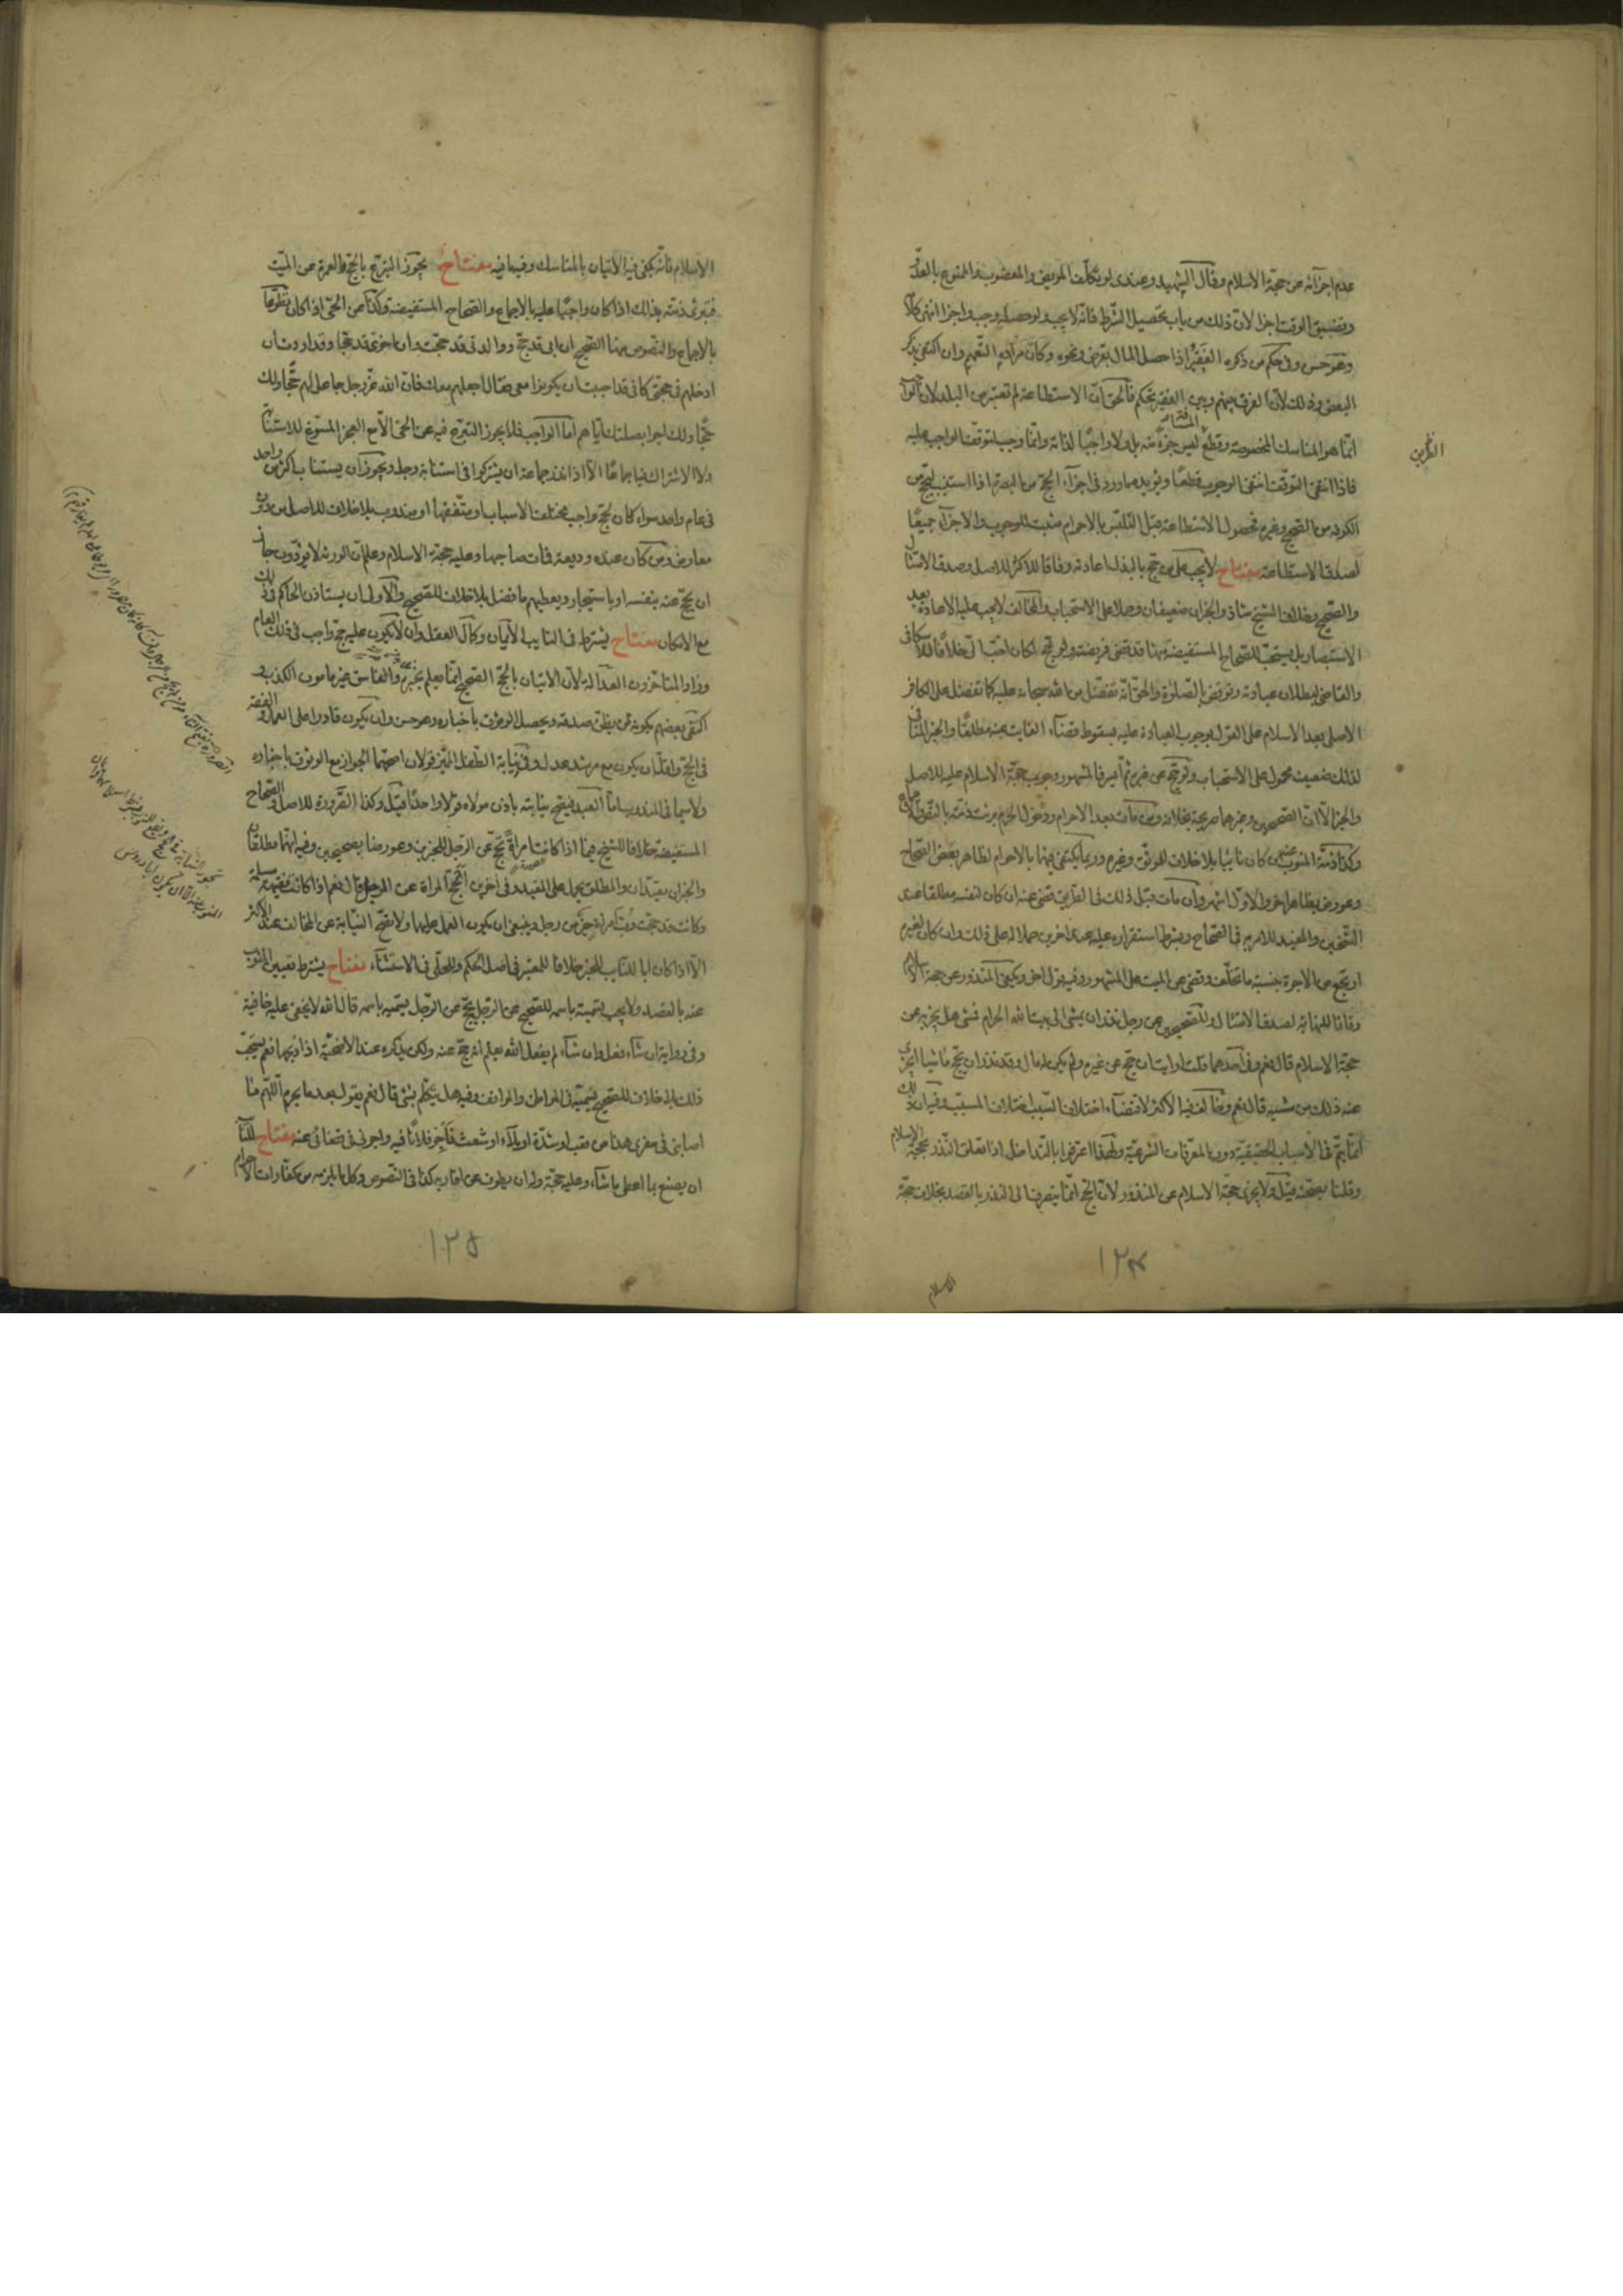 عدم اجزائه عن حجة الاسلام وقال الشهيد وعندى لو تكلف المريض والمعضوب والممنوع بالعدو
وتضييق الوقت اجزأ لان ذلك من باب تحصيل الشرط فانه لا يجب ولو حصله وجب واجزأ انتهى كلامه
وهو حسن وفى حكم من ذكره الفقير اذا حصل المال بقرض ونحوه وكان مراده التعميم وان اكتفى بذكر
البعض وذلك لان الفرق بينهم وبين الفقير تحكم فالحق ان الاستطاعة لم تعتبر من البلد لان الواجب
انما هو المناسك المخصوصة وقطع المسافة ليس جزءً منه بل ولا واجبًا لذاته وانما وجب لتوقف الواجب عليه
فاذا انتفى التوقف انتفى الوجوب قطعًا ويؤيده ما ورد فى اجزآء الحج من البصرة اذا استنيب ليحج من
الكوفة من الصحيح وغيره فحصول الاستطاعة قبل التلبس بالاحرام مثبت للوجوب والاجزآء جميعًا
لصدق الاستطاعة مفتاح لا يجب على من حج بالبذل اعادة وفاقا للاكثر للاصل وصدق الامتثال
والصحيح وخلاف الشيخ شاذ والخبران ضعيفان وحملا على الاستحباب والمخالف لا يجب عليه الاعادة بعد
الاستبصار بل يستحب للصحاح المستفيضة منها قد قضى فريضته ولو حج لكان احب الى خلافا للاسكافى
والقاضى لبطلان عبادته ونوقض بالصلوة والحق انه تفضل من الله سبحانه عليه كما تفضل على الكافر
الاصلى بعد الاسلام على القول بوجوب العبادة عليه بسقوط قضآء الفايت عنه مطلقًا والخبر المنافى
لذلك ضعيف محمول على الاستحباب ولو حج عن غيره ثم ايسر فالمشهور وجوب حجة الاسلام عليه للاصل
والخبر الا ان الصحيحين وغيرهما صريحة بخلافه ومن مات بعد الاحرام ودخول الحرم برئت ذمته بالنص والاجماع
وكذا ذمة المنوب عنه ان كان نائبًا بلا خلاف للموثق وغيره وربما يكتفى فيهما بالاحرام لظاهر بعض الصحاح
وعورض بظاهر اخر والاول اشهر وان مات قبل ذلك فى الطريق قضى عنه ان كان لنفسه مطلقا عند
الشيخين والمفيد للامر به فى الصحاح وبشرط استقراره عليه عند اخرين حملا له على ذلك وان كان لغيره
ارتجع من الاجرة بنسبة ما تخلف وقضى عن الميت على المشهور وفيه قول اخر ويكفى المنذور عن حجة الاسلام
وفاقا للنهاية لصدق الامتثال وللصحيحين عن رجل نذر ان يمشى الى بيت الله الحرام فمشى هل يجزيه عن
حجة الاسلام قال نعم وفى احدهما قلت ارايت ان حج عن غيره ولم يكن له مال وقد نذر ان يحج ماشيا ايجزى
عنه ذلك من مشيه قال نعم وخالف فيه الاكثر لاقتضآء اختلاف السبب اختلاف المسبب وفيه ان ذلك
انما يتم فى الاسباب الحقيقية دون المعرفات الشرعية ولهذا اعترفوا بالتداخل اذا تعلق النذر بحجة الاسلام
وقلنا بصحته قيل ولا يجزى حجة الاسلام عن المنذور لان الحج انما ينصرف الى النذر بالقصد بخلاف حجة
١٢٤
الاسلام
الاسلام فانه يكفى فيه الاتيان بالمناسك وفيه ما فيه مفتاح يجوز التبرع بالحج والعمرة عن الميت
فتبرئ ذمته بذلك اذا كان واجبًا عليه بالاجماع والصحاح المستفيضة وكذا عن الحى اذا كان تطوعًا
بالاجماع والنصوص منها الصحيح ان ابى قد حج ووالدتى قد حجت وان اخوى قد حجا وقد اردت ان
ادخلهم فى حجتى كانى قد احببت ان يكونوا معى فقال اجعلهم معك فان الله عز وجل جاعل لهم حجًا ولك
حجًا ولك اجرا بصلتك اياهم اما الواجب فلا يجوز التبرع فيه عن الحى الا مع العجز المسوغ للاستنابة
ولا الاشتراك فيه اجماعًا الا اذا نذر جماعة ان يشتركوا فى استنابة رجل ويجوز ان يستناب اكثر من واحد
فى عام واحد سواء كان لحج واجب مختلفة الاسباب او متفقها او مندوب بلا خلاف للاصل من دون
معارض ومن كان عنده وديعة فمات صاحبها وعليه حجة الاسلام وعلم ان الورثة لا يؤدون جاز
ان يحج عنه بنفسه او باستيجار ويعطيهم ما فضل بلا خلاف للصحيح والاولى ان يستاذن الحاكم فى ذلك
مع الامكان مفتاح يشترط فى النايب الايمان وكمال العقل وان لا يكون عليه حج واجب فى ذلك العام
وزاد المتاخرون العدالة لان الاتيان بالحج الصحيح انما يعلم بخبره والفاسق غير مامون الكذب و
اكتفى بعضهم بكونه ممن يظن صدقه ويحصل الوثوق باخباره وهو حسن وان يكون قادرا على العمل والفقه
فى الحج واقله ان يكون مع مرشد عدل وفى نيابة الطفل المميز قولان اصحهما الجواز مع الوثوق باخباره
ولا سيما فى المندوب اما العبد فيصح نيابته باذن مولاه قولا واحدًا قيل وكذا الصرورة للاصل والصحاح
المستفيضة خلافا للشيخ فيما اذا كانت امراةً تحج عن الرجل للخبرين وعورضا بصحيحين وفيه انهما مطلقان
والخبران مقيدان والمطلق يحمل على المقيد وفى اخرين اتحج المراة عن الرجل قال نعم اذا كانت فقيهة مسلمة
وكانت قد حجت رب امراة خير من رجل وينبغى ان يكون العمل عليهما ولا تصح النيابة عن المخالف عند الاكثر
الا اذا كان ابا للنايب للخبر خلافا للمعتبر فى اصل الحكم وللحلى فى الاستثنآء مفتاح يشترط تعيين المنوب
عنه بالقصد ولا يجب تسميته باسمه للصحيح عن الرجل يحج عن الرجل يسميه باسمه قال الله لا يخفى عليه خافية
وفى رواية ان شآء فعل وان شآء لم يفعل الله يعلم انه حج عنه ولكن يذكره عند الاضحية اذا ذبحها نعم يستحب
ذلك بلا خلاف للصحيح يسميه فى المواطن والمواقف وفيه هل يتكلم بشئ قال نعم يقول بعد ما يحرم اللهم ما
اصابنى فى سفرى هذا من تعب او شدة او بلآء او شعث فأجر فلانًا فيه واجرنى فى قضائى عنه مفتاح للنائب
ان يصنع بما اعطى ما شآء وعليه حجة وله ان يطوف عن اقاربه كذا فى النصوص وكل ما يلزمه من كفارات الاحرام
١٢٥